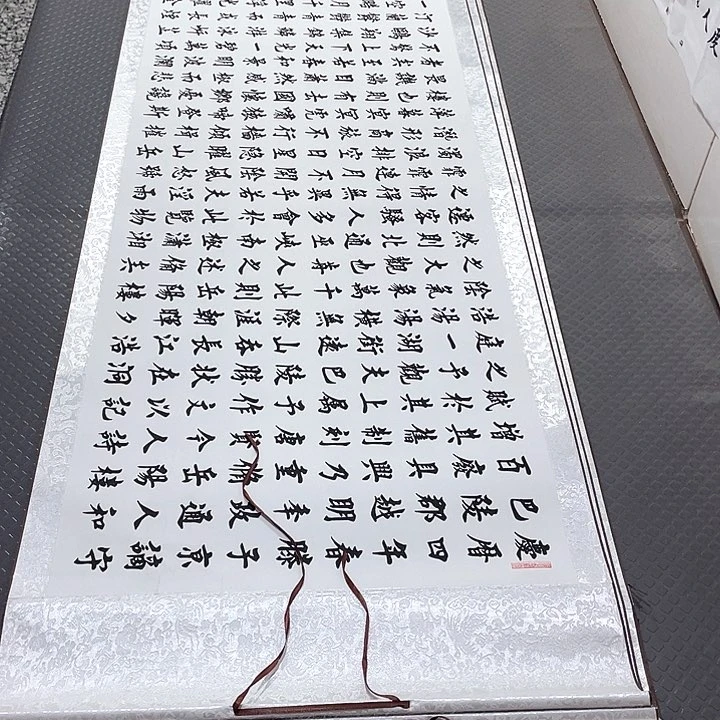 慶曆四年春滕子京謫守
巴陵郡越明年政通人和
百廢具興乃重脩岳陽樓
增其舊制刻唐賢今人詩
賦於其上属予作文以記
之予觀夫巴陵勝狀在洞
庭一湖銜遠山吞長江浩
浩湯湯橫無際涯朝暉夕
陰氣象萬千此則岳陽樓
之大觀也前人之述備矣
然則北通巫峽南極瀟湘
遷客騷人多會於此覽物
之情得無異乎若夫淫雨
霏霏連月不開陰風怒號
濁浪排空日星隱曜山岳
潛形商旅不行檣傾楫摧
薄暮冥冥虎嘯猿啼登斯
樓也則有去國懷鄉憂讒
畏譏滿目蕭然感極而悲
者矣至若春和景明波瀾
不驚上下天光一碧萬頃
沙鷗翔集錦鱗游泳岸芷